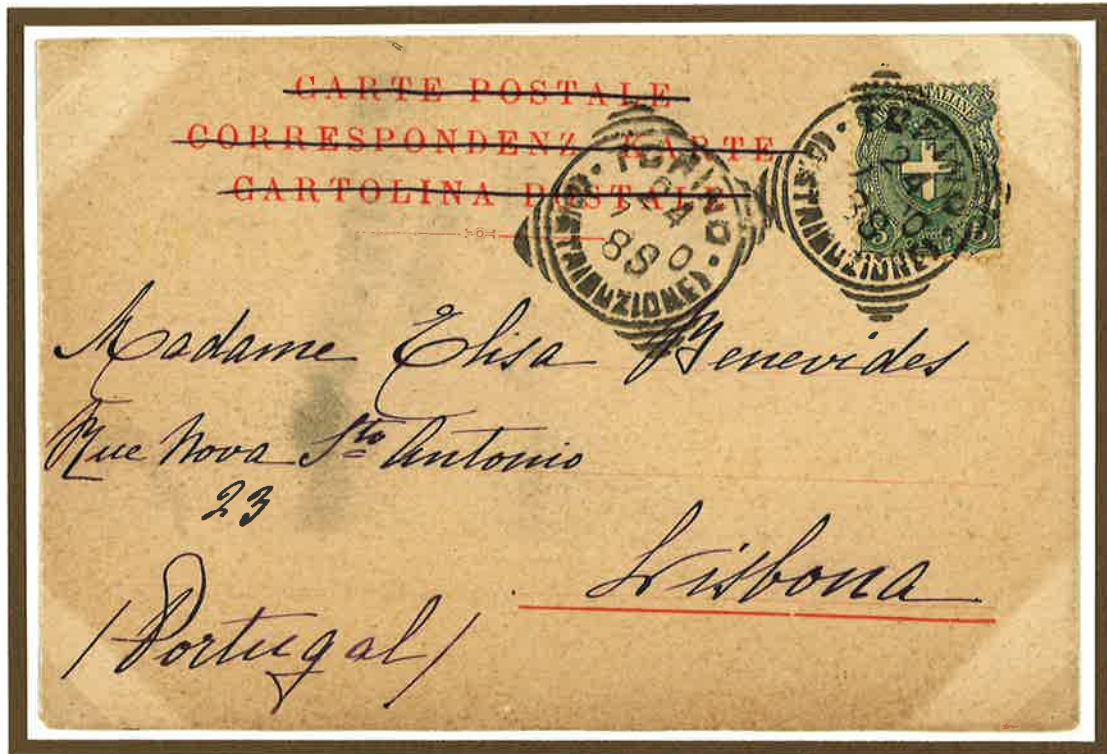 CARTE POSTALE
CORRESPONDENZ KARTE
CARTOLINA POSTALE
TORINO
(DISTRIBUZIONE)
TORINO
(DISTRIBUZIONE)
Madame Elisa Benevides
Rue Nova Sto Antonio
23
Lisbona
(Portugal)